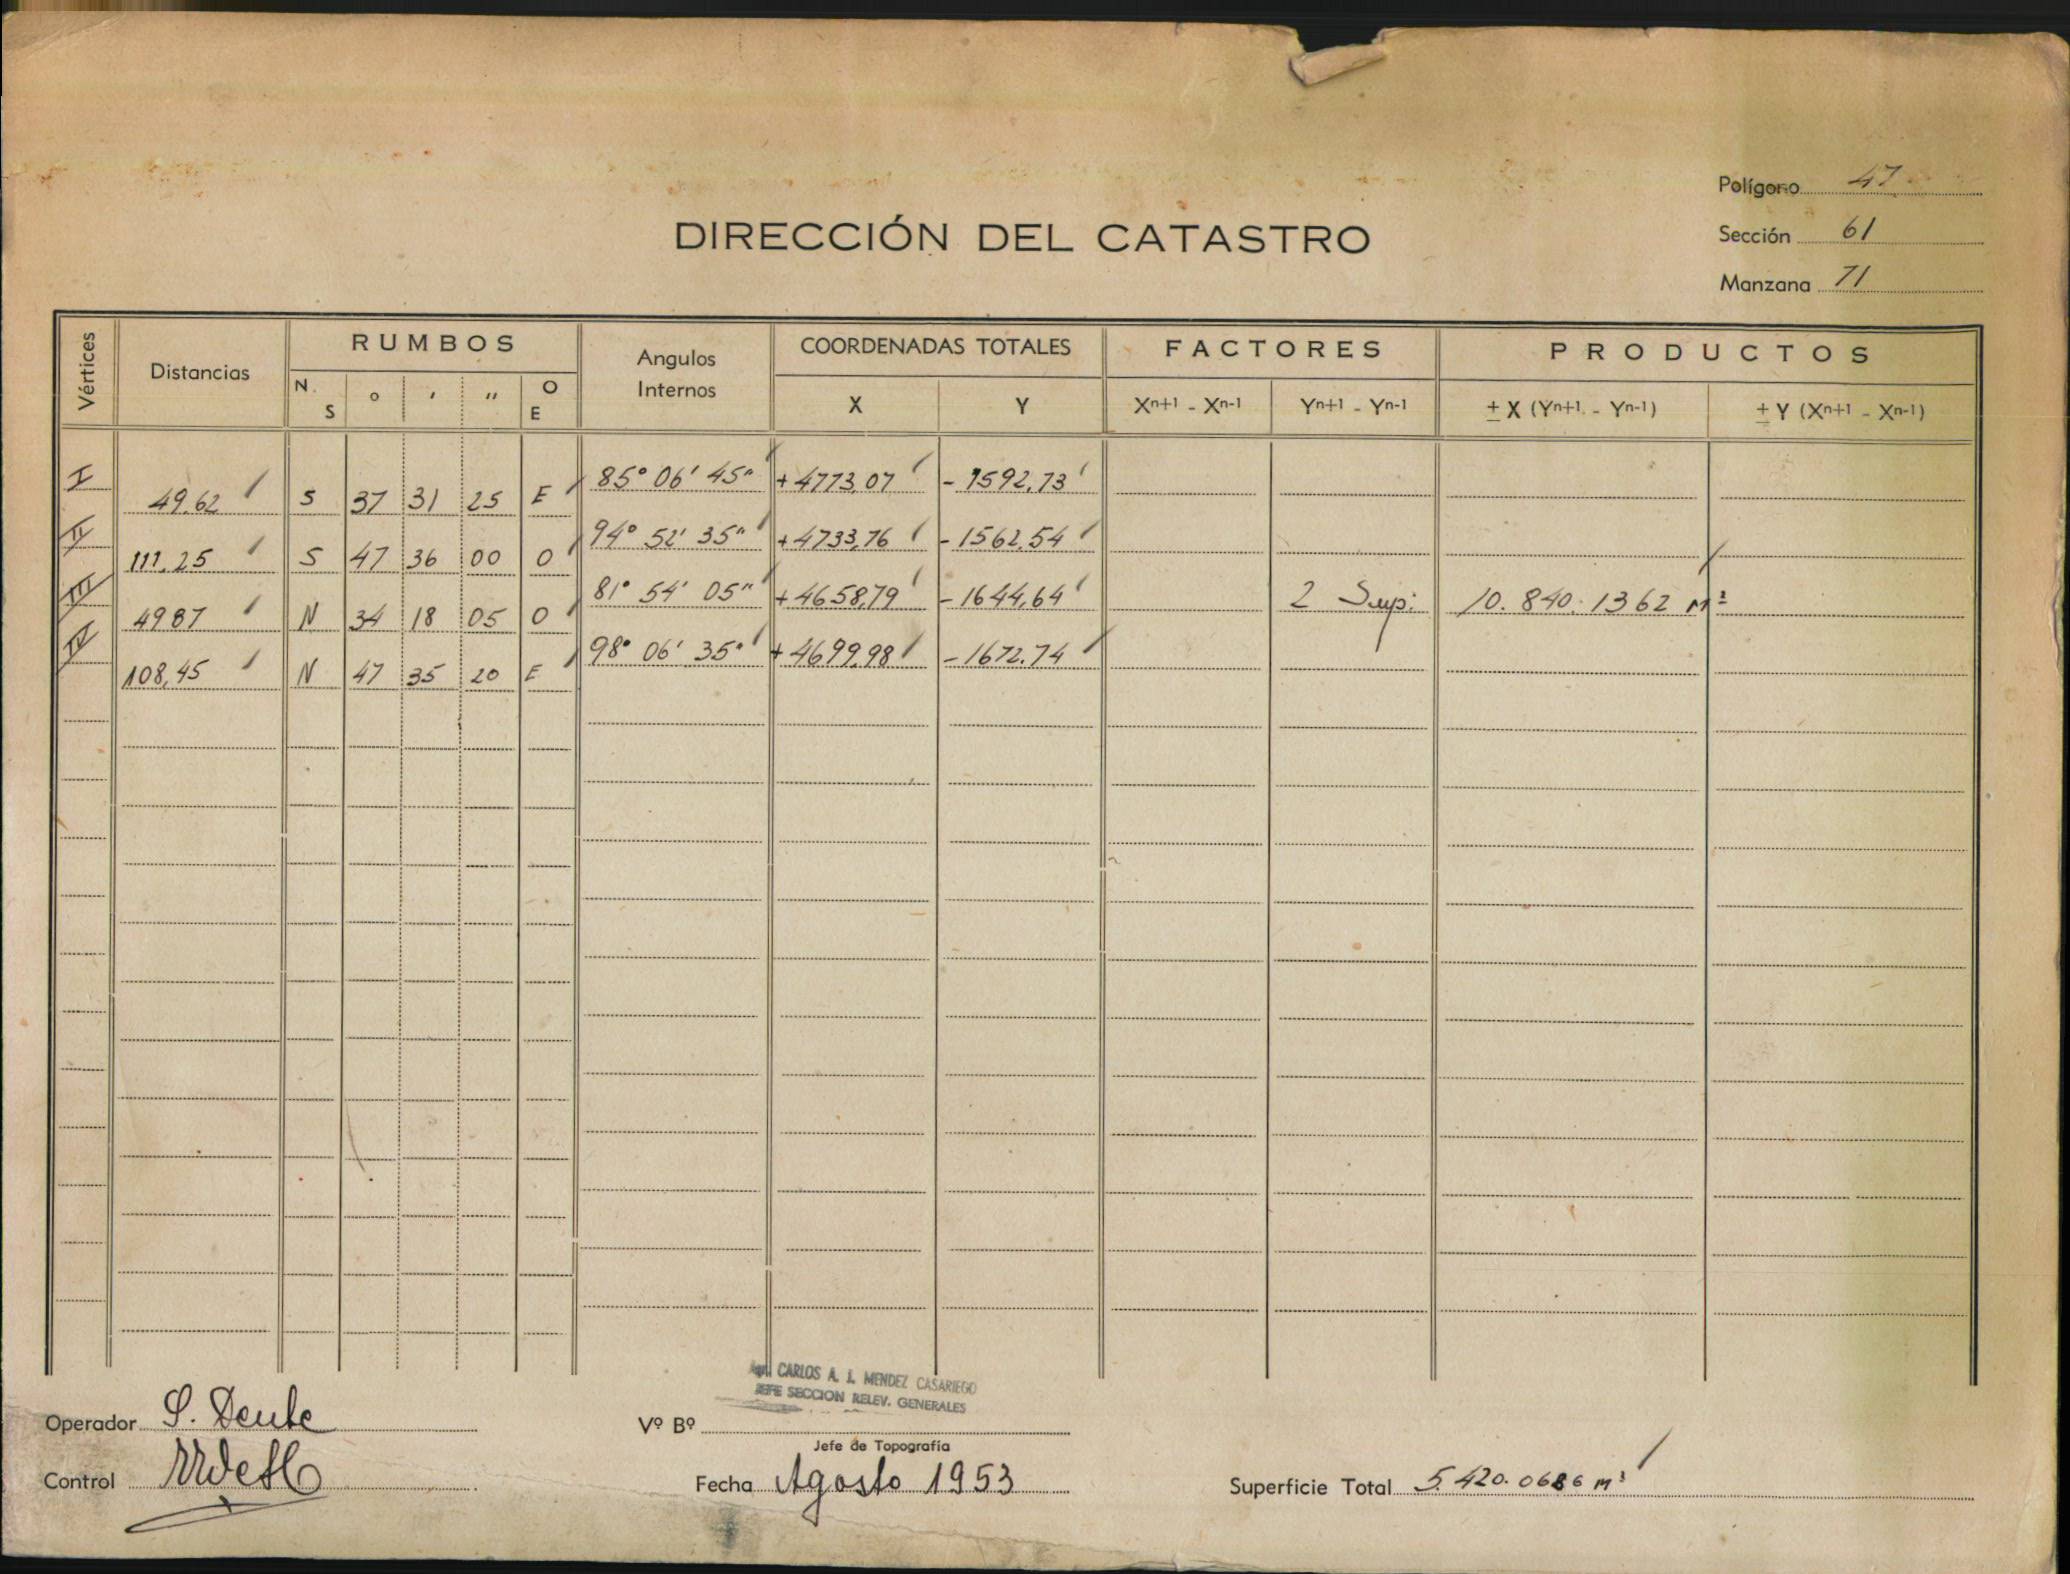 Polígono 47
DIRECCIÓN DEL CATASTRO
Sección 61
Manzana 71
Vértices Distancias RUMBOS Angulos Internos COORDENADAS TOTALES FACTORES PRODUCTOS
N. S ° ' " O E X Y Xn+1 - Xn-1 Yn+1 - Yn-1 ± X (Yn+1 - Yn-1) ± Y (Xn+1 - Xn-1)
I 85° 06' 45" +4773,07 - 1592,73
49.62 S 37 31 25 E
II 94° 52' 35" +4733,76 - 1562,54
111.25 S 47 36 00 O
III 81° 54' 05" +4658,79 - 1644,64 2 Sup: 10.840.1362 m²
4987 N 34 18 05 O
IV 98° 06' 35" +4699,98 - 1672,74
108,45 N 47 35 20 E
CARLOS A. J. MENDEZ CASARIEGO
JEFE SECCION RELEV. GENERALES
Operador
Vº Bº
Jefe de Topografía
Control
Fecha Agosto 1953
Superficie Total 5.420.0686 m²